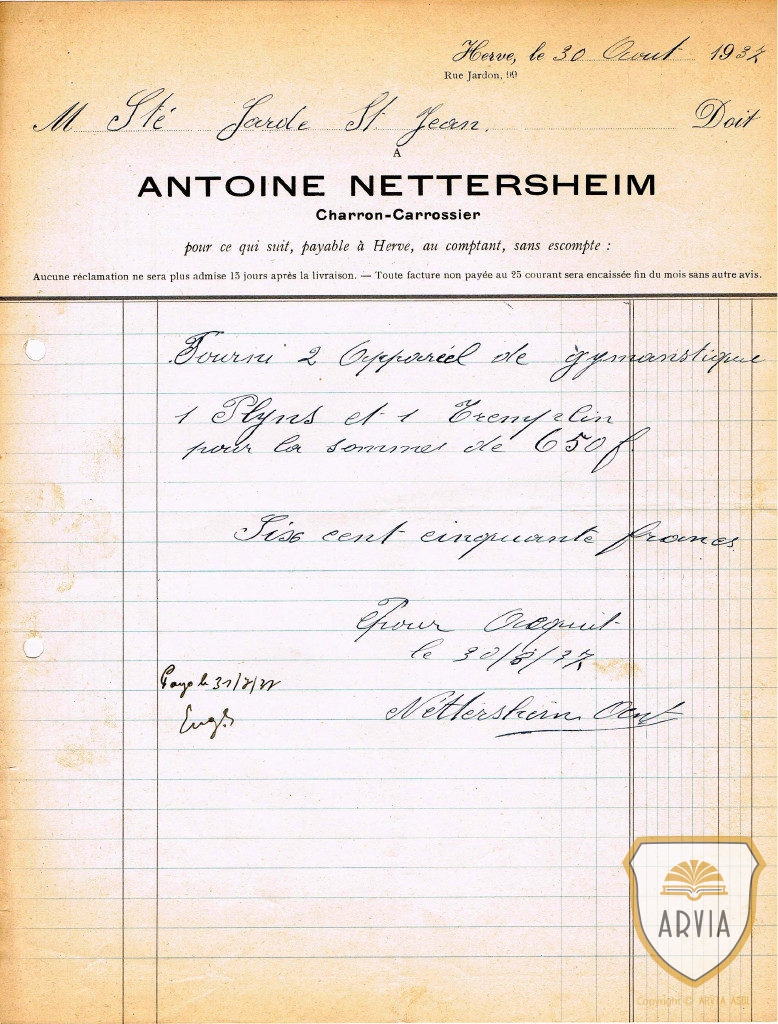 Herve, le 30 Aout 1937
Rue Jardon, 99
M Sté Jarde St Jean. Doit
A
ANTOINE NETTERSHEIM
Charron-Carrossier
pour ce qui suit, payable à Herve, au comptant, sans escompte :
Aucune réclamation ne sera plus admise 15 jours après la livraison. — Toute facture non payée au 25 courant sera encaissée fin du mois sans autre avis.
Fourni 2 Appareil de gymanstique
1 Plyns et 1 Tremplin
pour la sommes de 650 f.
Six cent cinquante francs
Pour Acquit
le 30/8/37
Payé le 31/8/37
Nettersheim Ant
ARVIA
Copyright © ARVIA ASBL